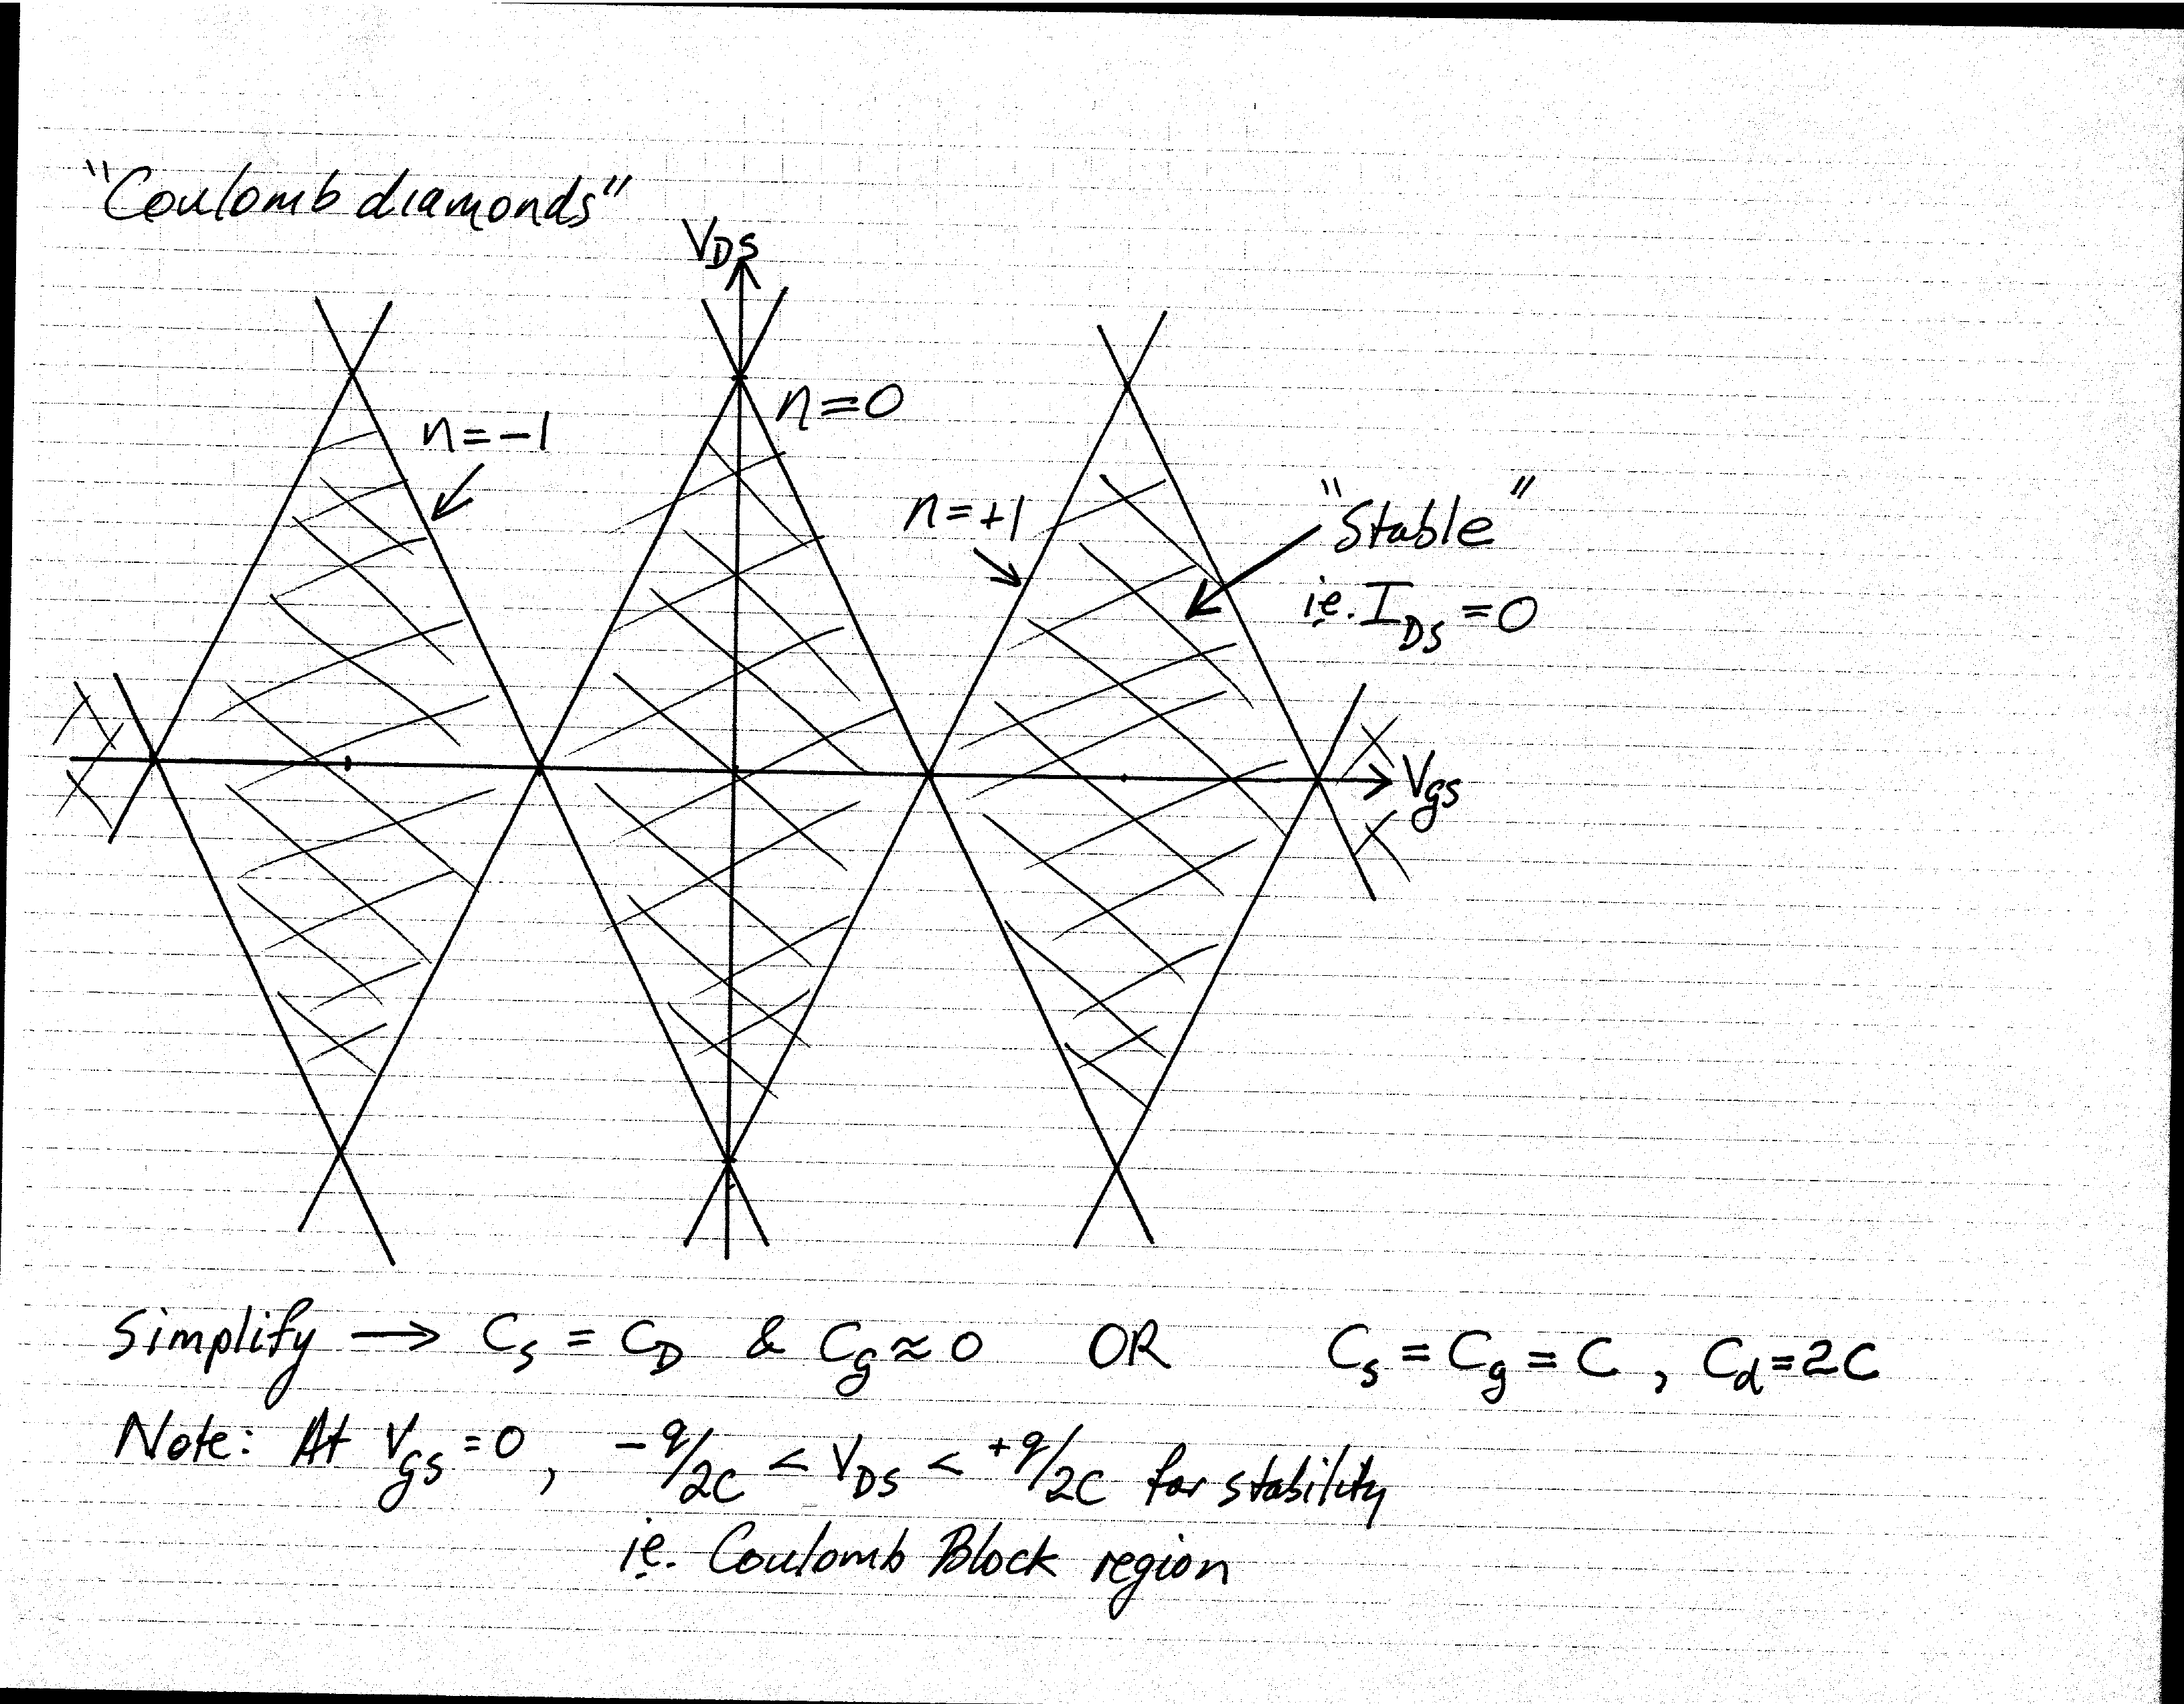 "Coulomb diamonds"
V_DS
n=0
n=-1
n=+1
"Stable"
ie. I_DS = 0
V_gs
Simplify → C_s = C_D & C_g ≈ 0 OR C_s = C_g = C, C_d = 2C
Note: At V_gs = 0, -q/2C < V_DS < +q/2C for stability
ie. Coulomb Block region